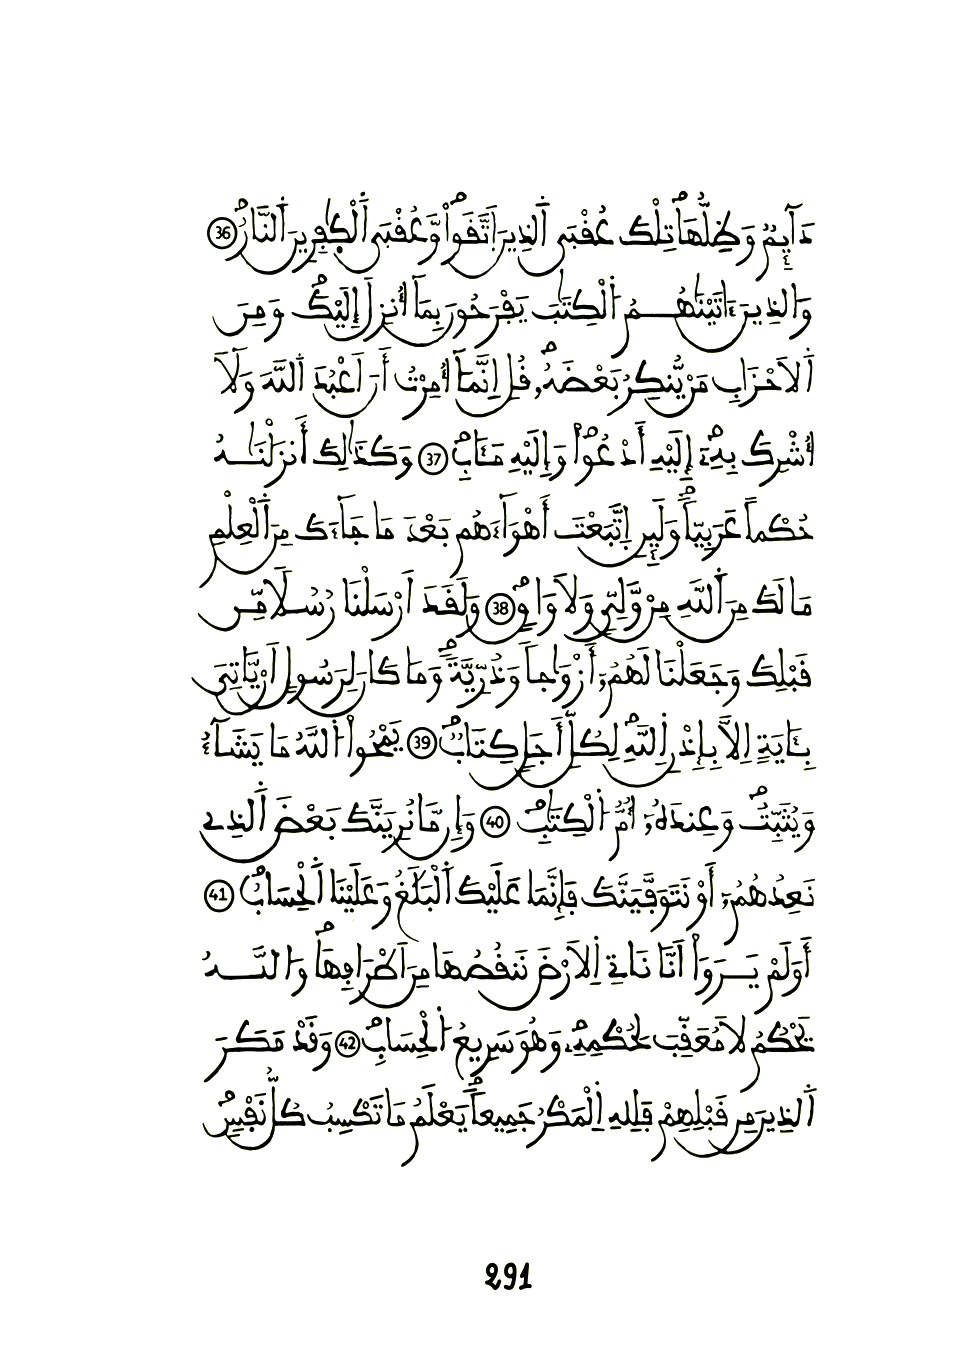 دَآيِمٌ وَظِلُّهَاۖ تِلْكَ عُقْبَى اَ۬لذِينَ اَ۪تَّقَواْۖ وَّعُقْبَى اَ۬لْكٰفِرِينَ اَ۬لنَّارُۖ 36
وَالذِينَ ءَاتَيْنَٰهُمُ اُ۬لْكِتَٰبَ يَفْرَحُونَ بِمَآ أُنزِلَ إِلَيْكَۖ وَمِنَ
اَ۬لَاحْزَابِ مَنْ يُّنكِرُ بَعْضَهُۥۖ قُلِ اِنَّمَآ أُمِرْتُ أَنَ اَعْبُدَ اَ۬للَّهَ وَلَآ
أُشْرِكَ بِهِۦٓۖ إِلَيْهِ أَدْعُواْۖ وَإِلَيْهِ مَـَٔابِۖ 37 وَكَذَٰلِكَ أَنزَلْنَٰهُ
حُكْماً عَرَبِيّاٗۖ وَلَئِنِ اِ۪تَّبَعْتَ أَهْوَآءَهُم بَعْدَ مَا جَآءَكَ مِنَ اَ۬لْعِلْمِ
مَا لَكَ مِنَ اَ۬للَّهِ مِنْ وَّلِيّٖ وَلَا وَاقٖۖ 38 وَلَقَدَ اَرْسَلْنَا رُسُلاٗ مِّن
قَبْلِكَ وَجَعَلْنَا لَهُمُۥٓ أَزْوَٰجاً وَذُرِّيَّةٗۖ وَمَا كَانَ لِرَسُولٍ اَنْ يَّاتِيَ
بِـَٔايَةٍ اِلَّا بِإِذْنِ اِ۬للَّهِۖ لِكُلِّ أَجَلٖ كِتَابٞۖ 39 يَمْحُواْ اُ۬للَّهُ مَا يَشَآءُ
وَيُثَبِّتُۖ وَعِندَهُۥٓ أُمُّ اُ۬لْكِتَٰبِۖ 40 وَإِن مَّا نُرِيَنَّكَ بَعْضَ اَ۬لذِے
نَعِدُهُمُۥٓ أَوْ نَتَوَفَّيَنَّكَ فَإِنَّمَا عَلَيْكَ اَ۬لْبَلَٰغُ وَعَلَيْنَا اَ۬لْحِسَابُۖ 41
أَوَلَمْ يَرَوَاْ اَنَّا نَاتِے اِ۬لَارْضَ نَنقُصُهَا مِنَ اَطْرَافِهَاۖ وَاللَّهُ
يَحْكُمُ لَا مُعَقِّبَ لِحُكْمِهِۦۖ وَهُوَ سَرِيعُ اُ۬لْحِسَابِۖ 42 وَقَدْ مَكَرَ
اَ۬لذِينَ مِن قَبْلِهِمْ فَلِلهِ اِ۬لْمَكْرُ جَمِيعاٗۖ يَعْلَمُ مَا تَكْسِبُ كُلُّ نَفْسٖۖ
291